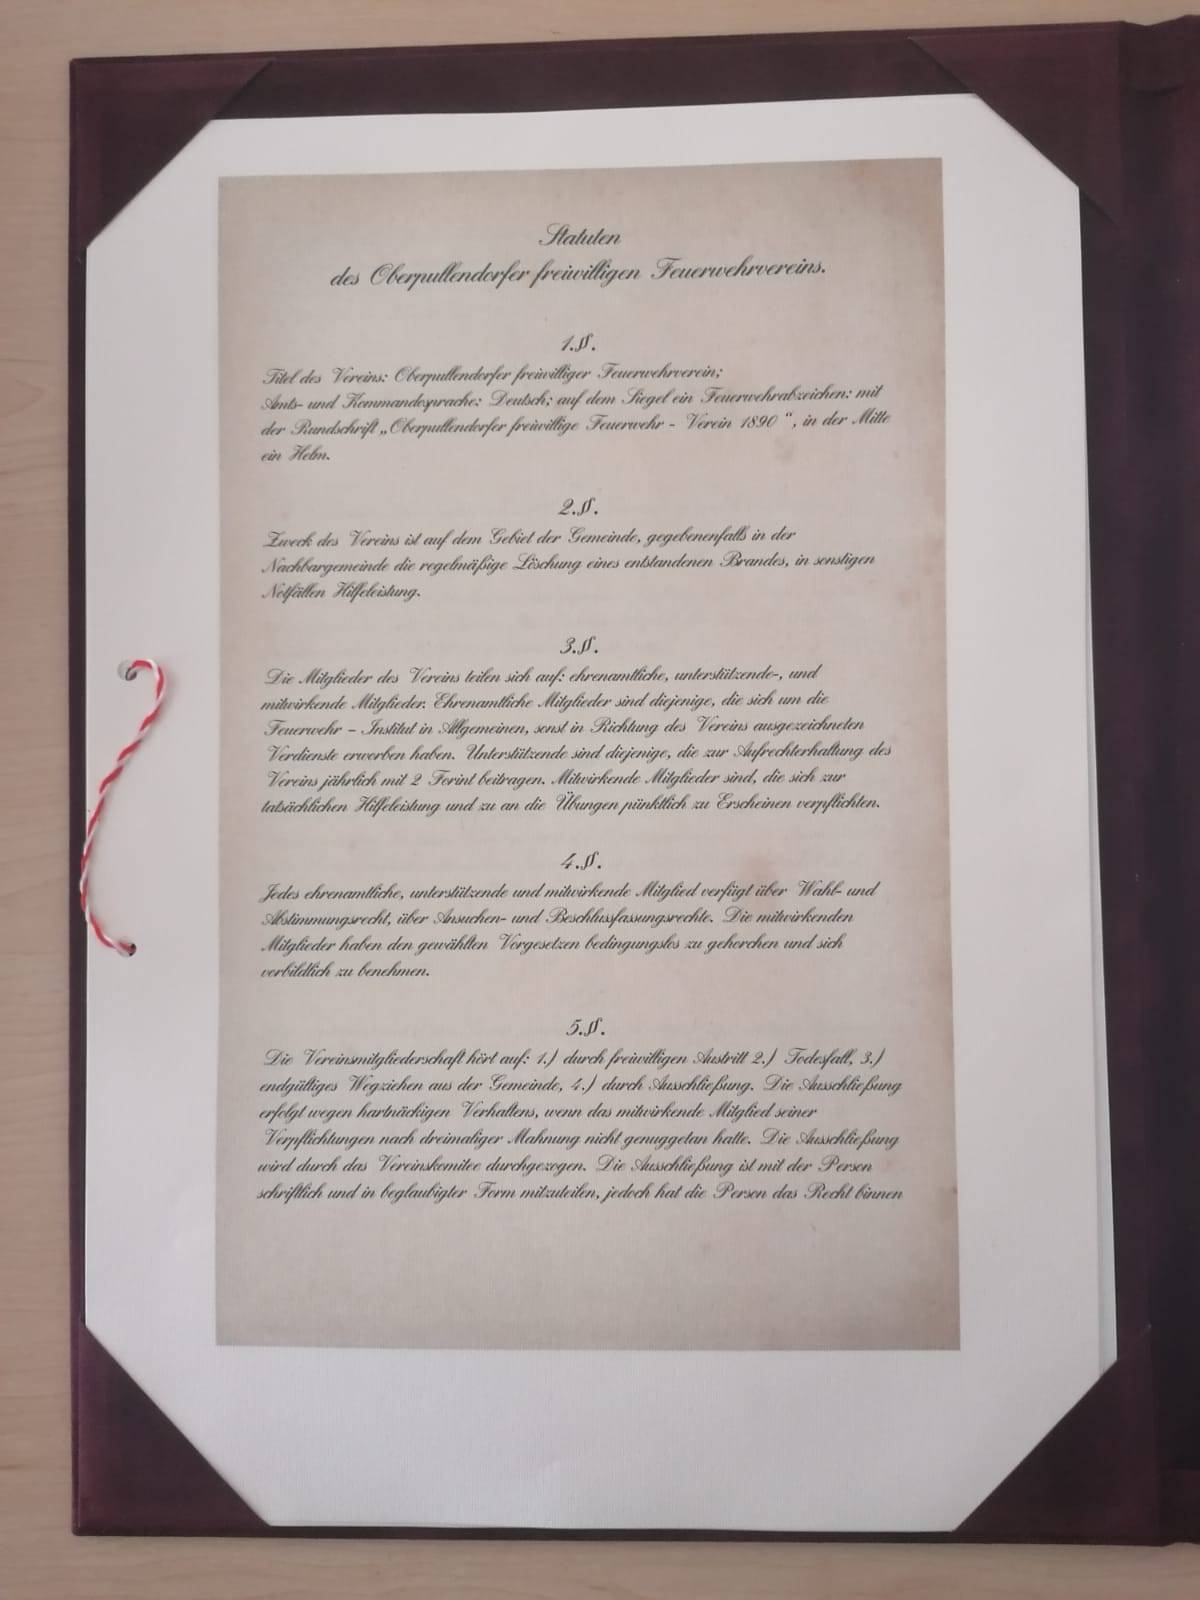 Statuten
des Oberpullendorfer freiwilligen Feuerwehrvereins.
1.§.
Titel des Vereins: Oberpullendorfer freiwilliger Feuerwehrverein;
Amts- und Kommandosprache: Deutsch; auf dem Siegel ein Feuerwehrabzeichen: mit
der Rundschrift „Oberpullendorfer freiwillige Feuerwehr - Verein 1890 “, in der Mitte
ein Helm.
2.§.
Zweck des Vereins ist auf dem Gebiet der Gemeinde, gegebenenfalls in der
Nachbargemeinde die regelmäßige Löschung eines entstandenen Brandes, in sonstigen
Notfällen Hilfeleistung.
3.§.
Die Mitglieder des Vereins teilen sich auf: ehrenamtliche, unterstützende-, und
mitwirkende Mitglieder. Ehrenamtliche Mitglieder sind diejenige, die sich um die
Feuerwehr – Institut in Allgemeinen, sonst in Richtung des Vereins ausgezeichneten
Verdienste erworben haben. Unterstützende sind diejenige, die zur Aufrechterhaltung des
Vereins jährlich mit 2 Forint beitragen. Mitwirkende Mitglieder sind, die sich zur
tatsächlichen Hilfeleistung und zu an die Übungen pünktlich zu Erscheinen verpflichten.
4.§.
Jedes ehrenamtliche, unterstützende und mitwirkende Mitglied verfügt über Wahl- und
Abstimmungsrecht, über Ansuchen- und Beschlussfassungsrechte. Die mitwirkenden
Mitglieder haben den gewählten Vorgesetzen bedingungslos zu gehorchen und sich
vorbildlich zu benehmen.
5.§.
Die Vereinsmitgliederschaft hört auf: 1.) durch freiwilligen Austritt 2.) Todesfall, 3.)
endgültiges Wegziehen aus der Gemeinde, 4.) durch Ausschließung. Die Ausschließung
erfolgt wegen hartnäckigen Verhaltens, wenn das mitwirkende Mitglied seiner
Verpflichtungen nach dreimaliger Mahnung nicht genuggetan hatte. Die Ausschließung
wird durch das Vereinskomitee durchgezogen. Die Ausschließung ist mit der Person
schriftlich und in beglaubigter Form mitzuteilen, jedoch hat die Person das Recht binnen